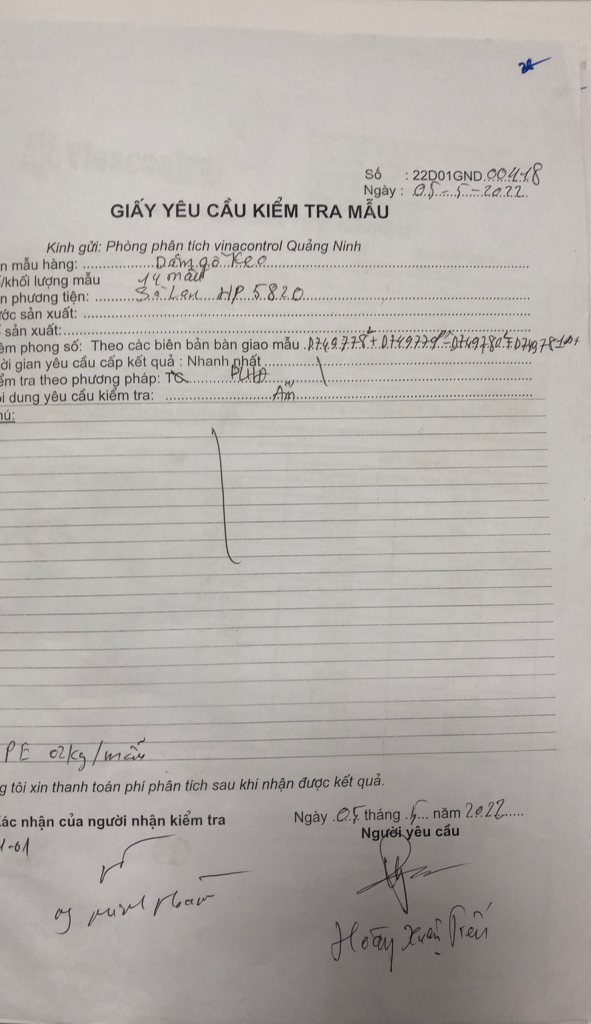 Số : 22D01GND.00418
Ngày : 05 - 5 - 2022
GIẤY YÊU CẦU KIỂM TRA MẪU
Kính gửi: Phòng phân tích vinacontrol Quảng Ninh
n mẫu hàng: Dăm gỗ keo
/khối lượng mẫu 14 mẫu
n phương tiện: Sà Lan HP 5820
ớc sản xuất:
sản xuất:
êm phong số: Theo các biên bản bàn giao mẫu
ời gian yêu cầu cấp kết quả : Nhanh nhất
ểm tra theo phương pháp:
i dung yêu cầu kiểm tra: Ẩm
hú:
PE 02kg/mẫu
g tôi xin thanh toán phí phân tích sau khi nhận được kết quả.
Ngày 05 tháng 5 năm 2022
Xác nhận của người nhận kiểm tra
Người yêu cầu
1-01
Hoàng Xuân Tiến